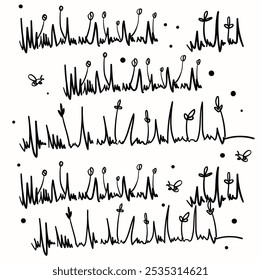 shutterstock.com · 2535314621